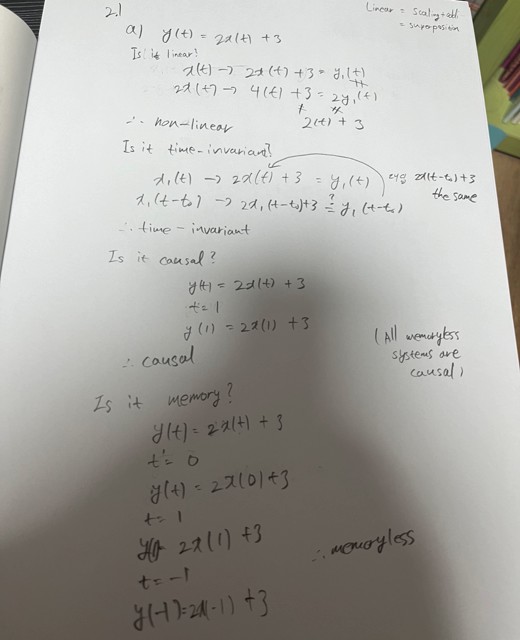 2.1
Linear = scaling + add
= superposition
a) y(t) = 2x(t) + 3
Is it linear?
x(t) → 2x(t) + 3 = y₁(t)
2x(t) → 4(t) + 3 = 2y₁(t)
∴ non-linear
2(t) + 3
Is it time-invariant?
x₁(t) → 2x(t) + 3 = y₁(t)
2x(t-t₀)+3
the same
x₁(t-t₀) → 2x₁(t-t₀)+3 ≟ y₁(t-t₀)
∴ time-invariant
Is it causal?
y(t) = 2x(t) + 3
t = 1
y(1) = 2x(1) + 3
∴ causal
(All memoryless
systems are
causal)
Is it memory?
y(t) = 2x(t) + 3
t = 0
y(t) = 2x(0) + 3
t = 1
2x(1) + 3
∴ memoryless
t = -1
y(-1) = 2x(-1) + 3